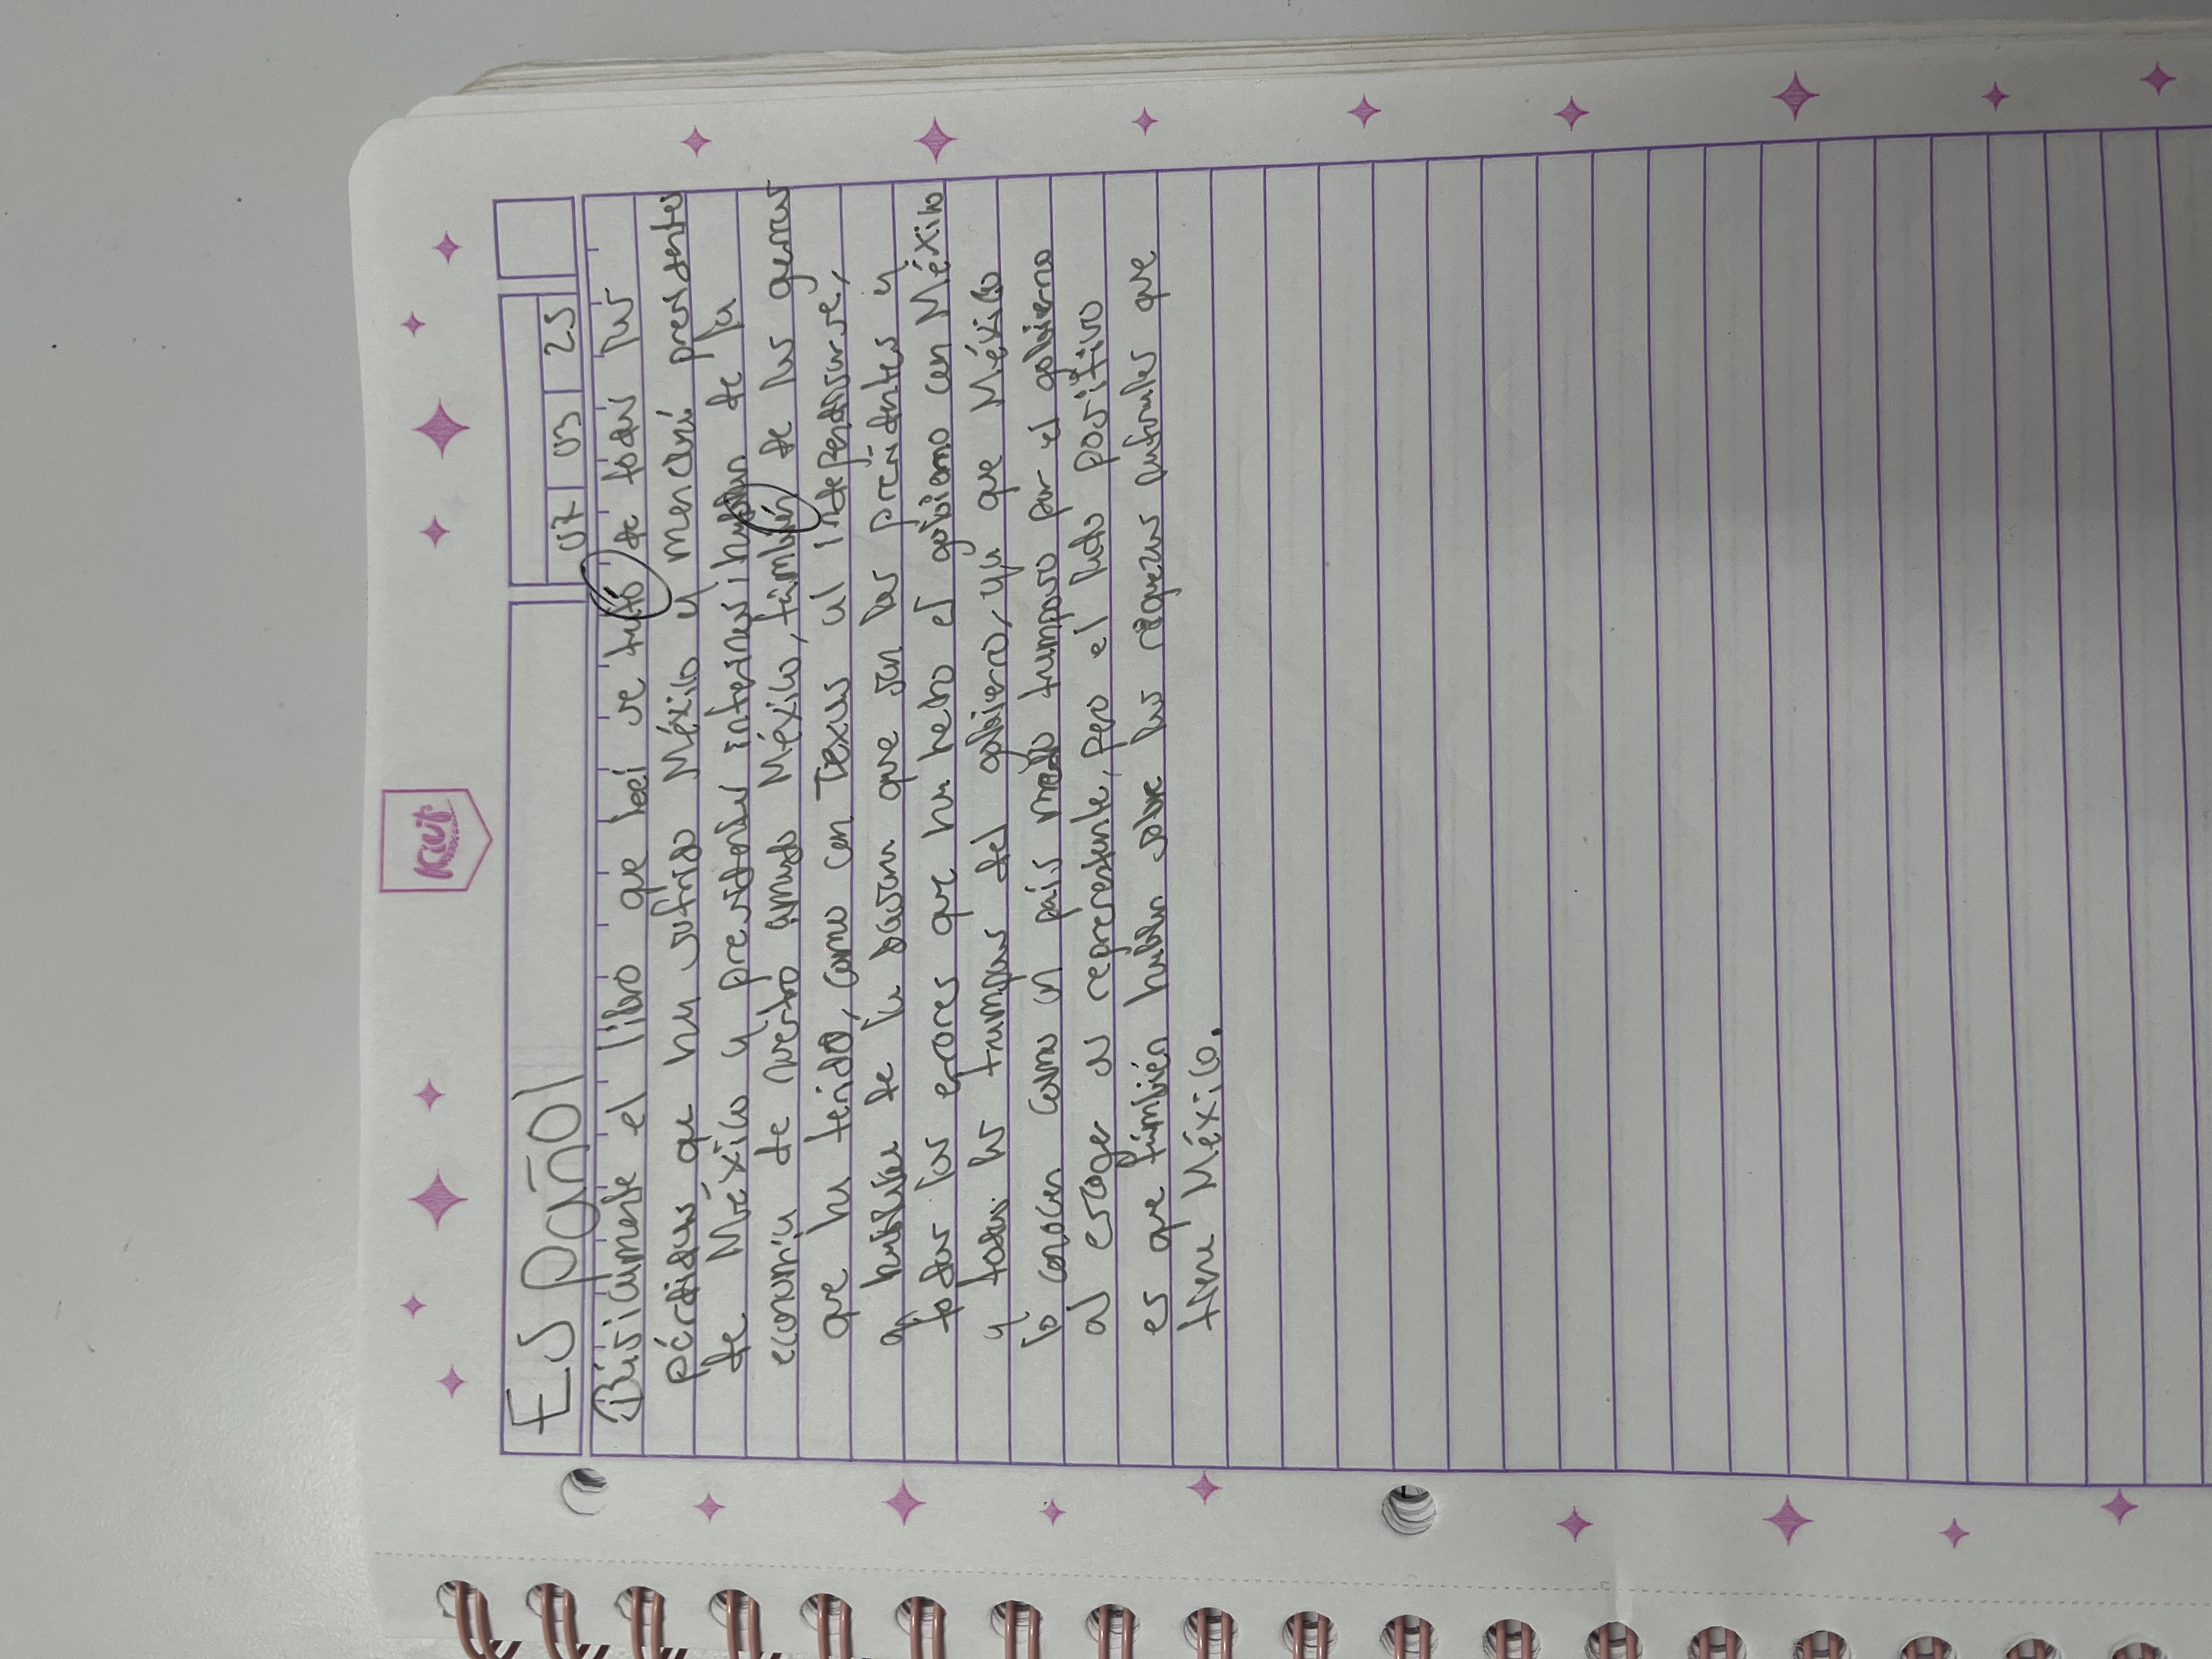 Español
07 03 25
Kiut
Básicamente el libro que leí se trató de todas las
pérdidas que ha sufrido México y mencinó presidentes
de México y presidentes interinos, hablan de la
economía de nuestro amado México, también de las guerras
que ha tenido, como con Texas al independisarse,
al hablar de la causa que son los presidentes y
todos los erores que ha hecho el gobierno con México
y todas las trampas del gobierno, ya que México
lo conocen como un país medio tramposo por el gobierno
al escoger al representante, pero el lado positivo
es que también hablan sobre las riquezas naturales que
tiene México.